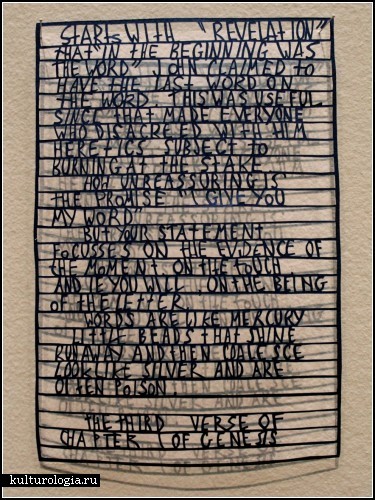 STARTS WITH "REVELATION"
THAT IN THE BEGINNING WAS
THE WORD" JOHN CLAIMED TO
HAVE THE LAST WORD ON
THE WORD. THIS WAS USEFUL
SINCE THAT MADE EVERYONE
WHO DISAGREED WITH HIM
HERETICS SUBJECT TO
BURNING AT THE STAKE
HOW UNREASSURING IS
THE PROMISE I GIVE YOU
MY WORD"
BUT YOUR STATEMENT
FOCUSSES ON THE EVIDENCE OF
THE MOMENT, ON THE TOUCH,
AND IF YOU WILL, ON THE BEING
OF THE LETTER
WORDS ARE LIKE MERCURY
LITTLE BEADS THAT SHINE
RUN AWAY AND THEN COALESCE
LOOK LIKE SILVER AND ARE
OFTEN POISON.
THE THIRD VERSE OF
CHAPTER I OF GENESIS
kulturologia.ru